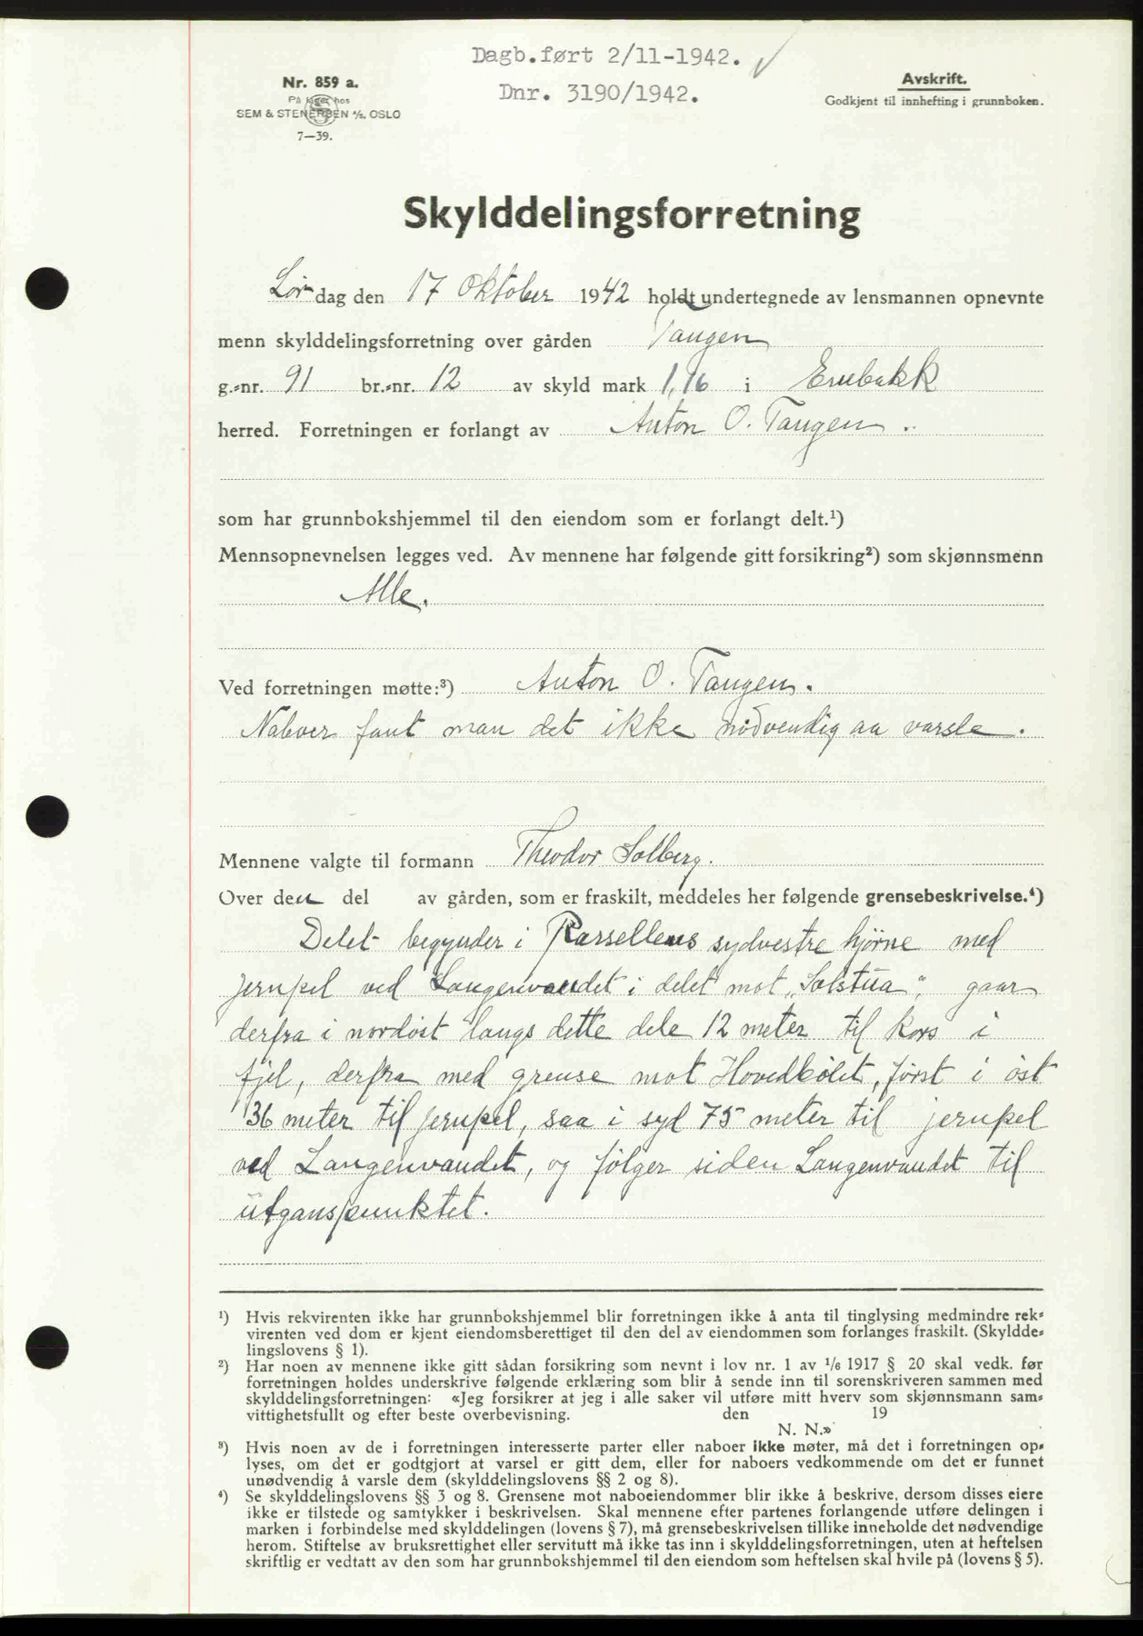 Dagb.ført 2/11-1942.
Dnr. 3190/1942.
Nr. 859 a.
På lager hos
SEM & STENERSEN A/S. OSLO
7—39.
Avskrift.
Godkjent til innhefting i grunnboken.
Skylddelingsforretning
Lørdag den 17 Oktober 1942 holdt undertegnede av lensmannen opnevnte
menn skylddelingsforretning over gården Tangen
g.=nr. 91 br.=nr. 12 av skyld mark 1,16 i Enebakk
herred. Forretningen er forlangt av Anton O. Tangen.
som har grunnbokshjemmel til den eiendom som er forlangt delt.¹)
Mennsopnevnelsen legges ved. Av mennene har følgende gitt forsikring²) som skjønnsmenn
Alle.
Ved forretningen møtte:³) Anton O. Tangen.
Naboer fant man det ikke nödvendig aa varsle.
Mennene valgte til formann Theodor Solberg.
Over den del av gården, som er fraskilt, meddeles her følgende grensebeskrivelse.⁴)
Delet begynder i Parsellens sydvestre hjörne med
jernpel ved Langenvandet i delet mot „Solstua", gaar
derfra i nordöst langs dette dele 12 meter til kors i
fjel, derfra med grense mot Hovedbölet, först i öst
36 meter til jernpel, saa i syd 75 meter til jernpel
ved Langenvandet, og fölger siden Langenvandet til
utganspunktet.
¹) Hvis rekvirenten ikke har grunnbokshjemmel blir forretningen ikke å anta til tinglysing medmindre rek=
virenten ved dom er kjent eiendomsberettiget til den del av eiendommen som forlanges fraskilt. (Skyldde=
lingslovens § 1).
²) Har noen av mennene ikke gitt sådan forsikring som nevnt i lov nr. 1 av 1/6 1917 § 20 skal vedk. før
forretningen holdes underskrive følgende erklæring som blir å sende inn til sorenskriveren sammen med
skylddelingsforretningen: «Jeg forsikrer at jeg i alle saker vil utføre mitt hverv som skjønnsmann sam=
vittighetsfullt og efter beste overbevisning. den 19
N. N.»
³) Hvis noen av de i forretningen interesserte parter eller naboer ikke møter, må det i forretningen op=
lyses, om det er godtgjort at varsel er gitt dem, eller for naboers vedkommende om det er funnet
unødvendig å varsle dem (skylddelingslovens §§ 2 og 8).
⁴) Se skylddelingslovens §§ 3 og 8. Grensene mot naboeiendommer blir ikke å beskrive, dersom disses eiere
ikke er tilstede og samtykker i beskrivelsen. Skal mennene efter partenes forlangende utføre delingen i
marken i forbindelse med skylddelingen (lovens § 7), må grensebeskrivelsen tillike inneholde det nødvendige
herom. Stiftelse av bruksrettighet eller servitutt må ikke tas inn i skylddelingsforretningen, uten at heftelsen
skriftlig er vedtatt av den som har grunnbokshjemmel til den eiendom som heftelsen skal hvile på (lovens § 5).